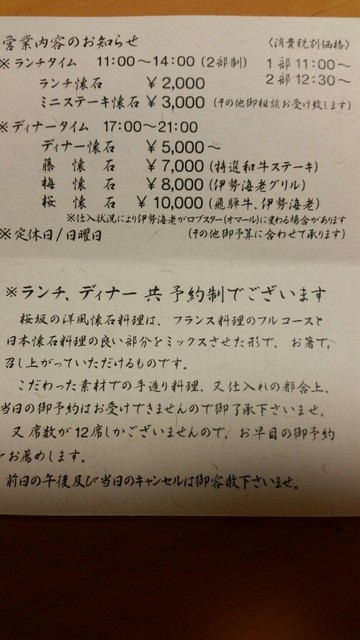 営業内容のお知らせ 〈消費税別価格〉
※ランチタイム 11:00～14:00(2部制) 1部11:00～
ランチ懐石 ¥2,000 2部12:30～
ミニステーキ懐石 ¥3,000 (その他御相談お受け致します)
※ディナータイム 17:00～21:00
ディナー懐石 ¥5,000～
藤 懐 石 ¥7,000 (特選和牛ステーキ)
梅 懐 石 ¥8,000 (伊勢海老グリル)
桜 懐 石 ¥10,000 (飛騨牛、伊勢海老)
※仕入状況により伊勢海老がロブスター(オマール)に変わる場合があります
※定休日/日曜日 (その他御予算に合わせて承ります)
※ランチ、ディナー共 予約制でございます
桜坂の洋風懐石料理は、フランス料理のフルコースと
日本懐石料理の良い部分をミックスさせた形で、お箸で、
召し上がっていただけるものです。
こだわった素材での手造り料理、又仕入れの都合上、
当日の御予約はお受けできませんので御了承下さいませ。
又席数が12席しかございませんので、お早目の御予約
をお薦めします。
前日の午後及び当日のキャンセルは御容赦下さいませ。